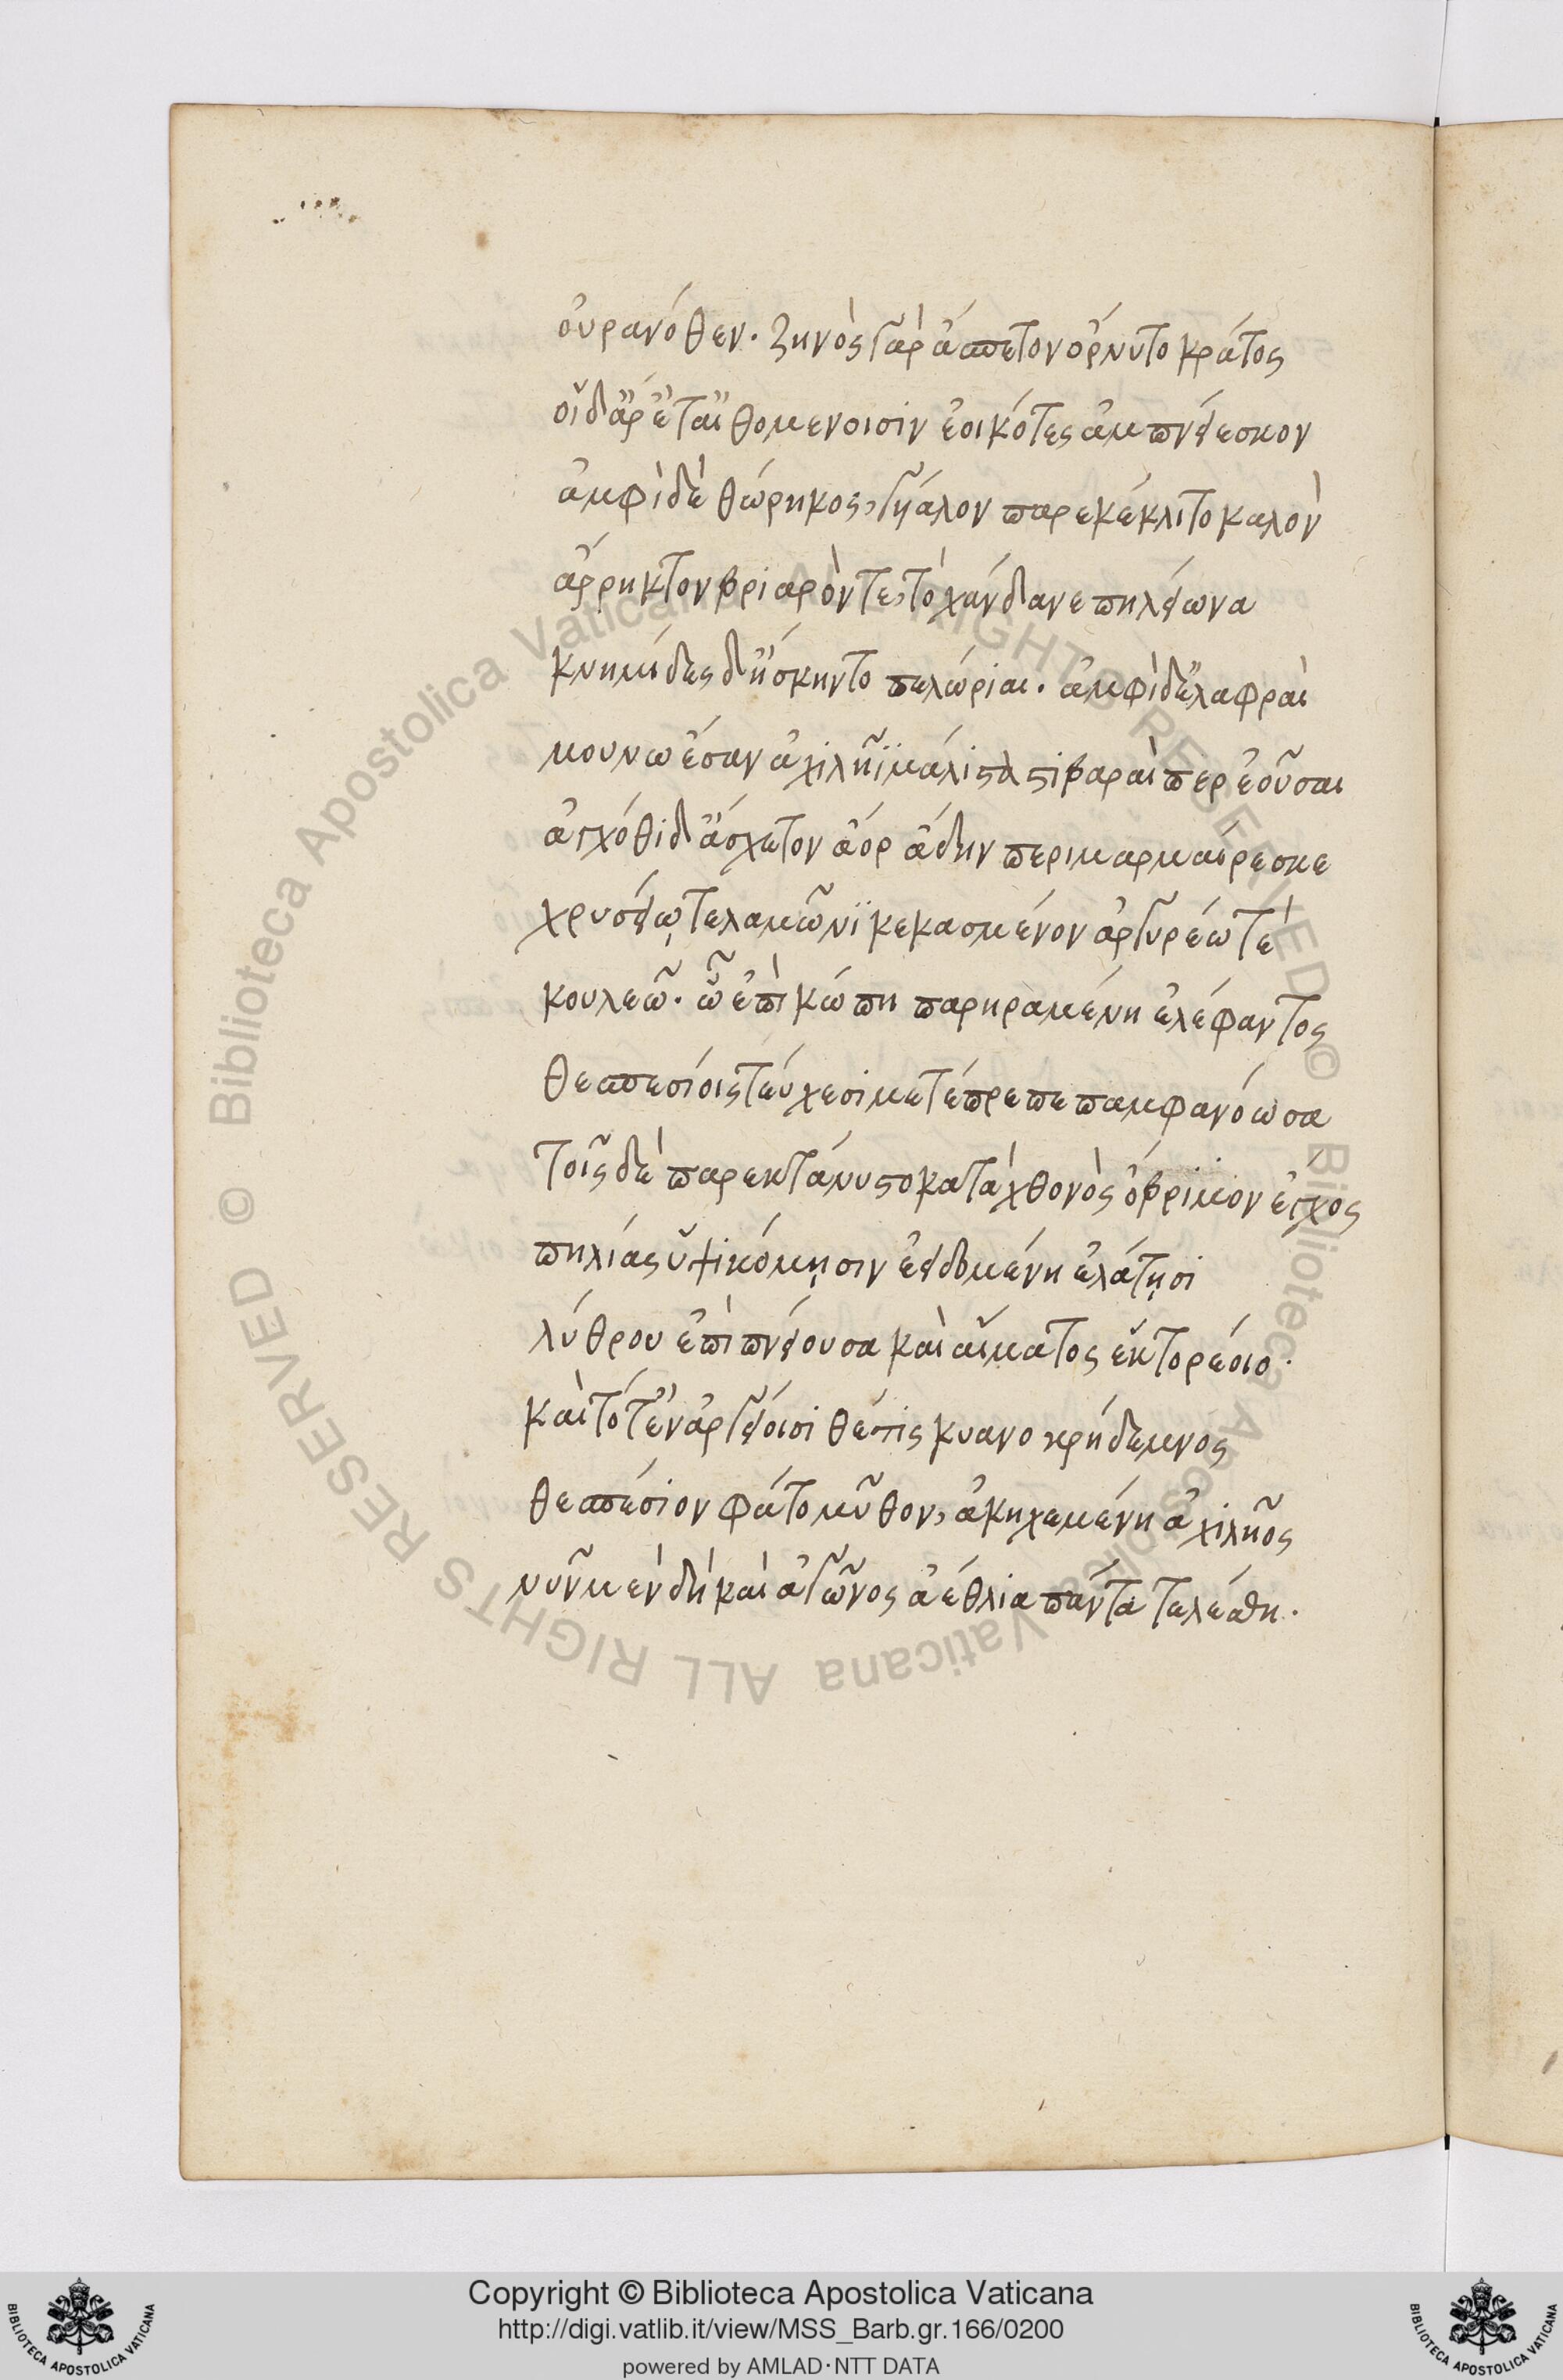 οὐρανόθεν. ζηνὸς γὰρ ἄασπετον ὄρνυτο κράτος
οἵ δ' ἄρ' ἔτ' αἰθομένοισιν ἐοικότες ἀμπνείεσκον
ἀμφὶ δὲ θώρηκος, γύαλον παρεκέκλιτο καλὸν
ἄρρηκτον βριαρόν τε, τὸ χάνδανε πηλείωνα
κνημίδες δ' ἤσκηντο πελώριαι. ἀμφὶ δ' ἐλαφραὶ
μουνω ἔσαν ἀχιλῆϊ μάλιστα στιβαραὶ περ ἐοῦσαι
ἀγχόθι δ' ἄσχετον ἄορ ἄδην περιμαρμαίρεσκε
χρυσείῳ τελαμῶνϊ κεκασμένον ἀργυρέω τὲ
κουλεῶ. ᾧ ἐπὶ κώπη παρηραμένη ἐλέφαντος
θεσπεσίοις τεύχεσι μετέπρεπε παμφανόωσα
τοῖς δὲ παρεκτάνυστο κατὰ χθονὸς ὄβριμον ἔγχος
πηλίας ὑψικόμῃσιν ἐειδομένη ἐλάτῃσι
λύθρου ἐπὶ πνείουσα καὶ αἵματος ἑκτορέοιο.
καὶ τότ' ἐν ἀργείοισι θέτις κυανοκρήδεμνος
θεσπέσιον φάτο μῦθον, ἀκηχεμένη ἀχιλῆος
νῦν μὲν δὴ καὶ ἀγῶνος ἀέθλια πάντα τελέσθη.
© Biblioteca Apostolica Vaticana ALL RIGHTS RESERVED © Biblioteca Apostolica Vaticana ALL RIGHTS RESERVED
Copyright © Biblioteca Apostolica Vaticana
http://digi.vatlib.it/view/MSS_Barb.gr.166/0200
powered by AMLAD·NTT DATA
BIBLIOTECA APOSTOLICA VATICANA
BIBLIOTECA APOSTOLICA VATICANA